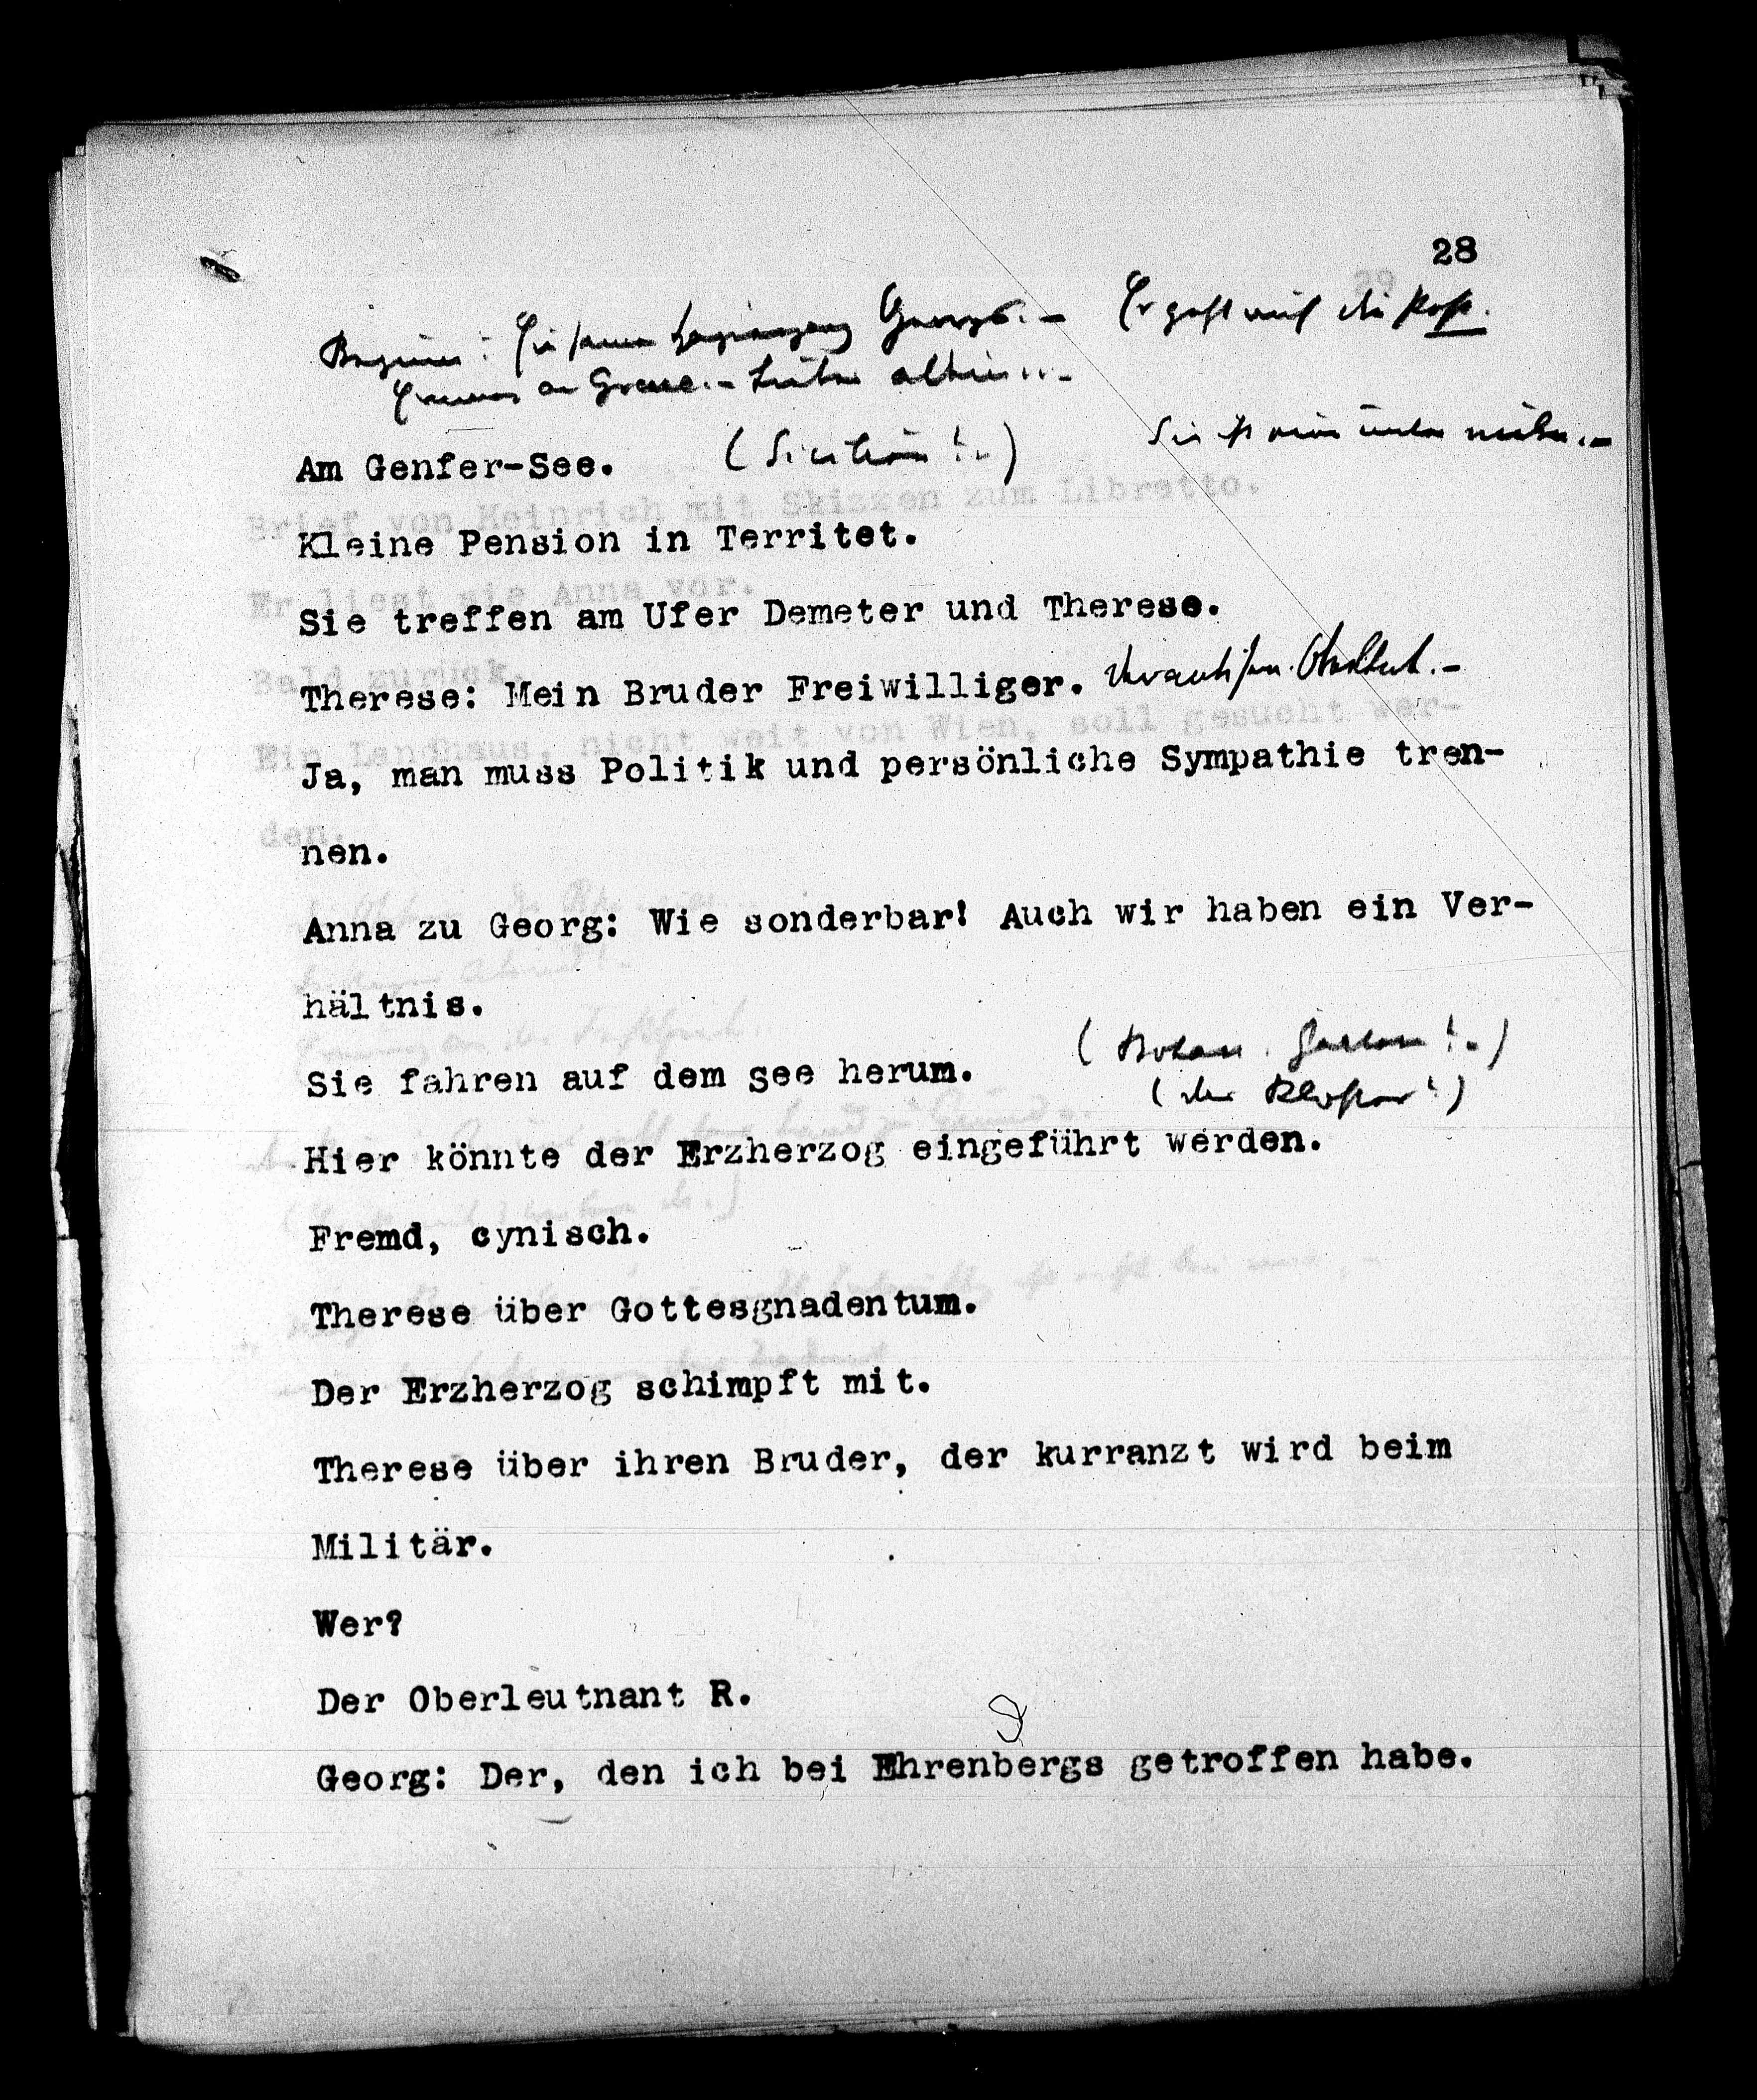 28
Beginn: Einsamer Spaziergang Georgs. – Er geht auf die Post.
Erinnerung an Grace. –
Am Genfer-See. (Sicilien!.)
Kleine Pension in Territet.
Sie treffen am Ufer Demeter und Therese.
Therese: Mein Bruder Freiwilliger.
Ja, man muss Politik und persönliche Sympathie tren-
nen.
Anna zu Georg: Wie sonderbar! Auch wir haben ein Ver-
hältnis.
(Botan. Garten!.)
Sie fahren auf dem See herum.
(der Kloster!)
Hier könnte der Erzherzog eingeführt werden.
Fremd, cynisch.
Therese über Gottesgnadentum.
Der Erzherzog schimpft mit.
Therese über ihren Bruder, der kurranzt wird beim
Militär.
Wer?
Der Oberleutnant R.
Georg: Der, den ich bei Ehrenbergs getroffen habe.